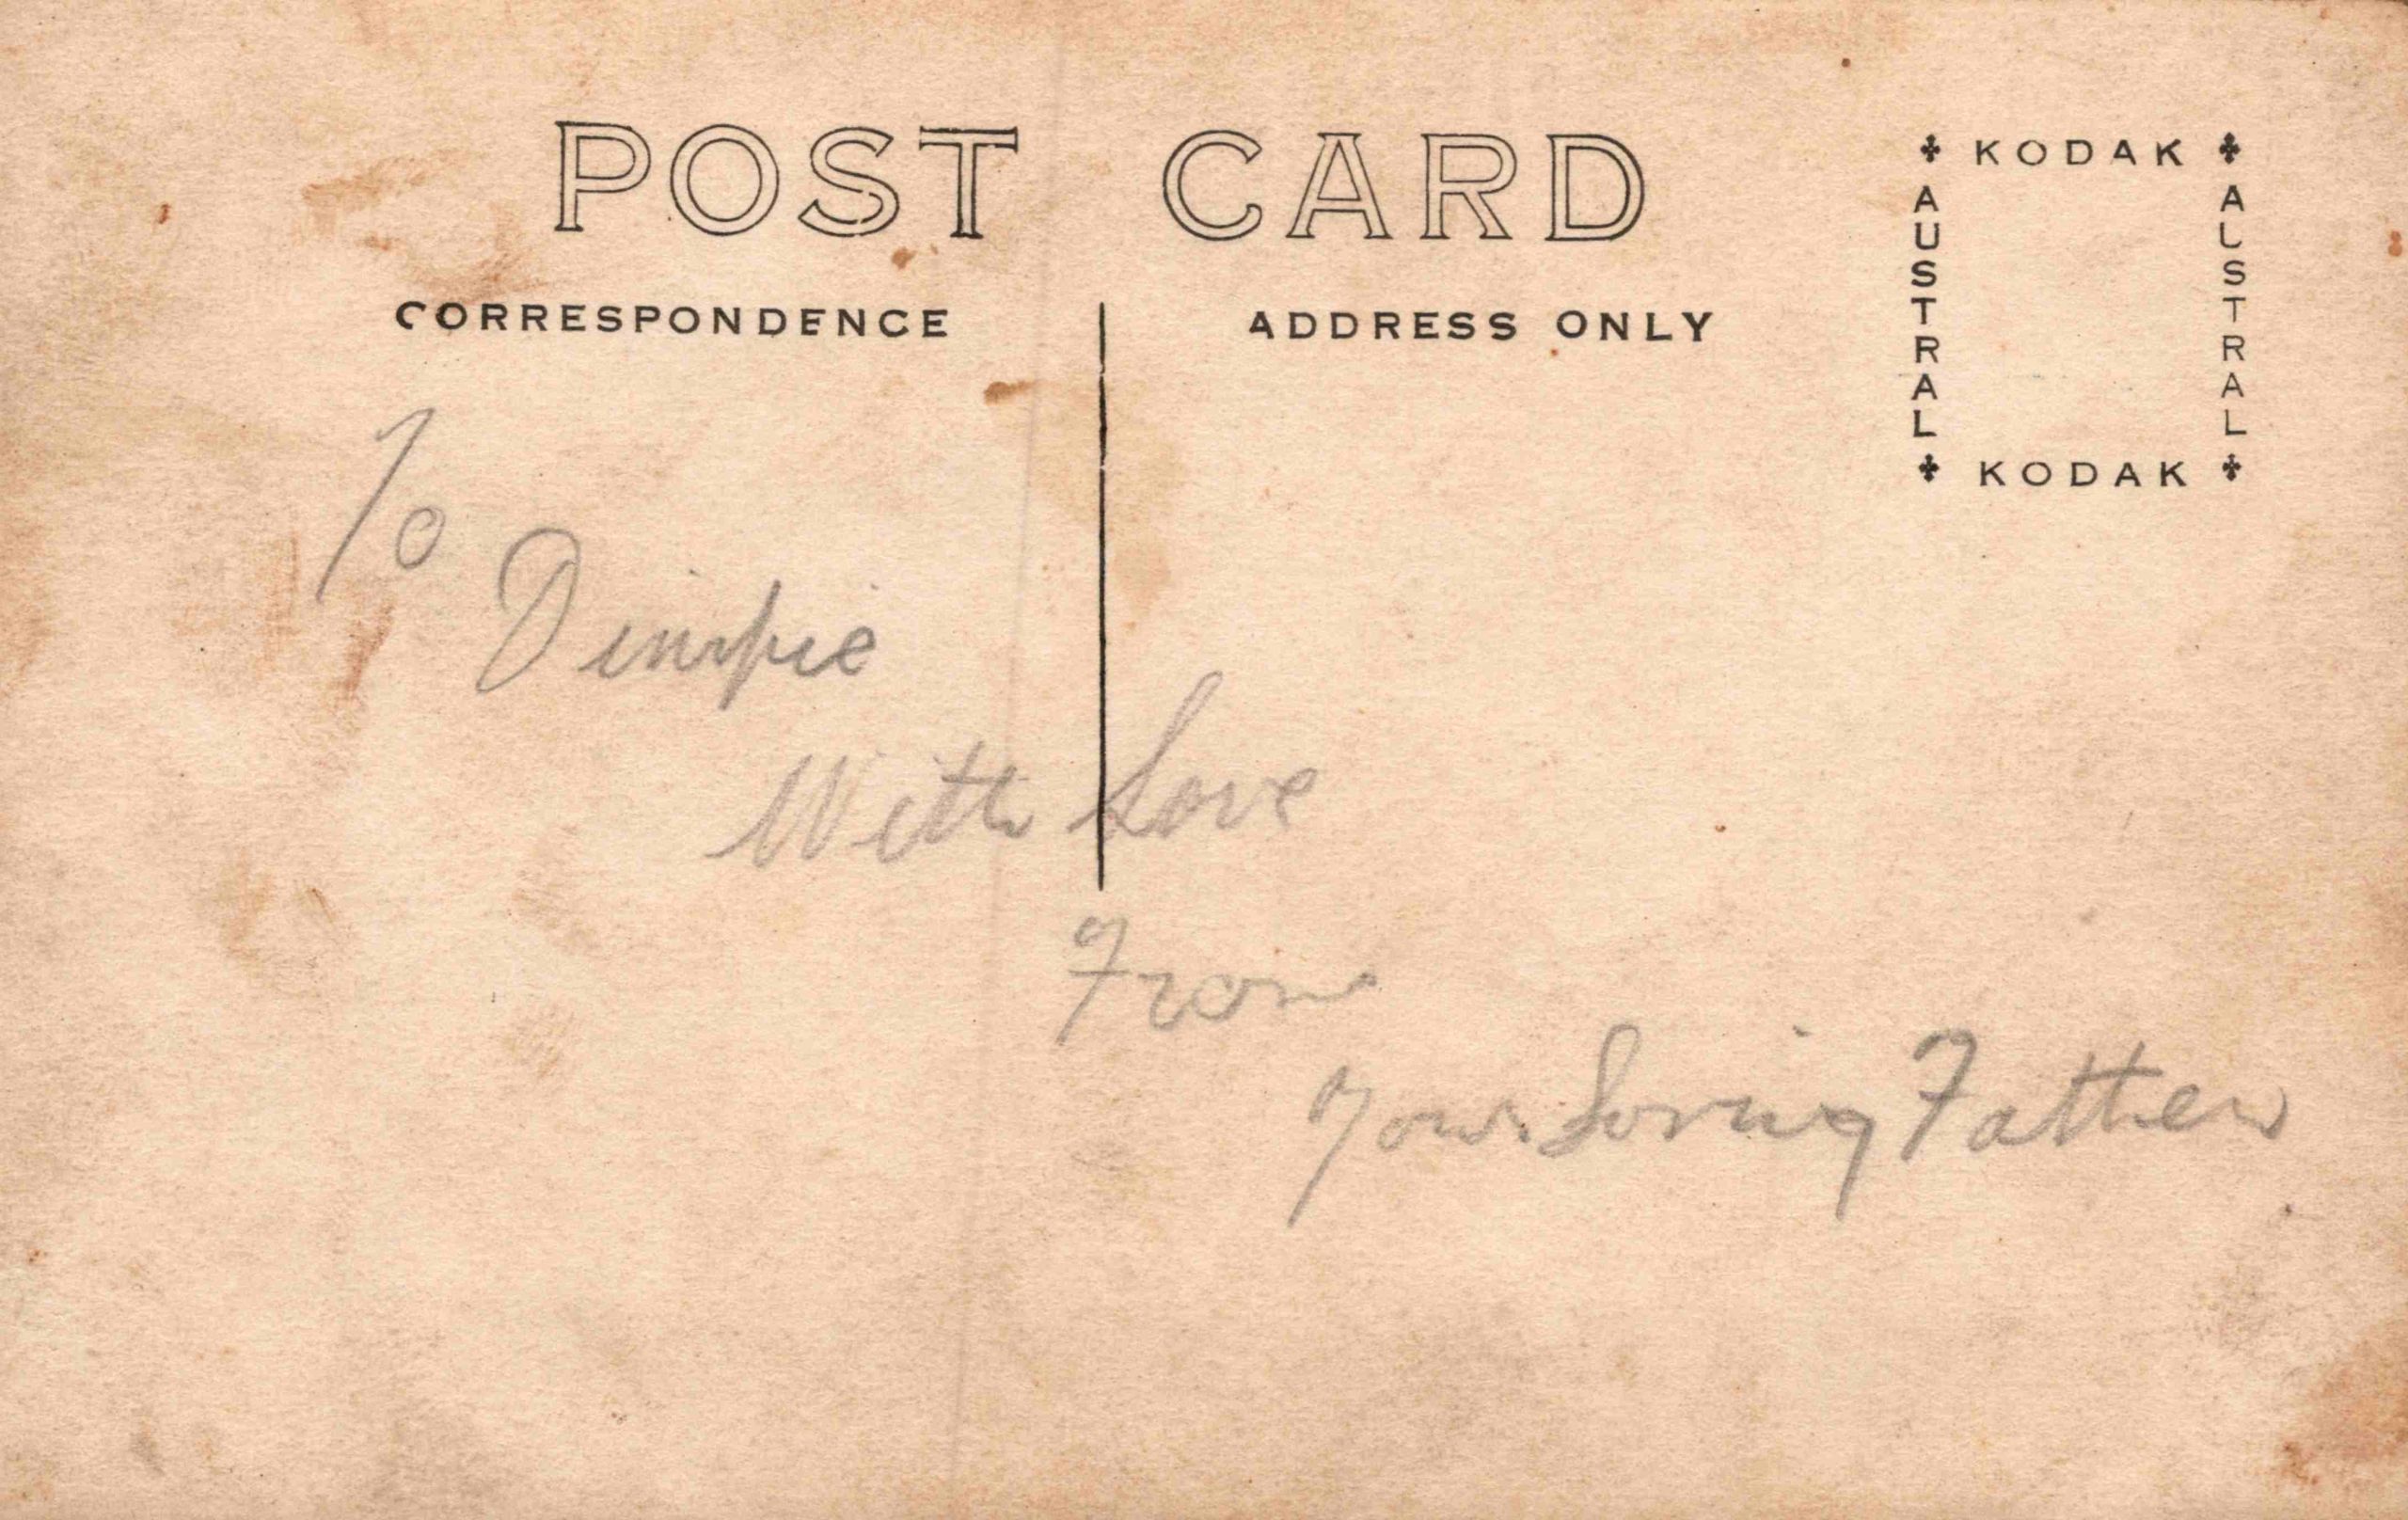 POST CARD
CORRESPONDENCE
ADDRESS ONLY
KODAK
AUSTRAL
AUSTRAL
KODAK
To
Dimpie
With Love
From
Your Loving Father